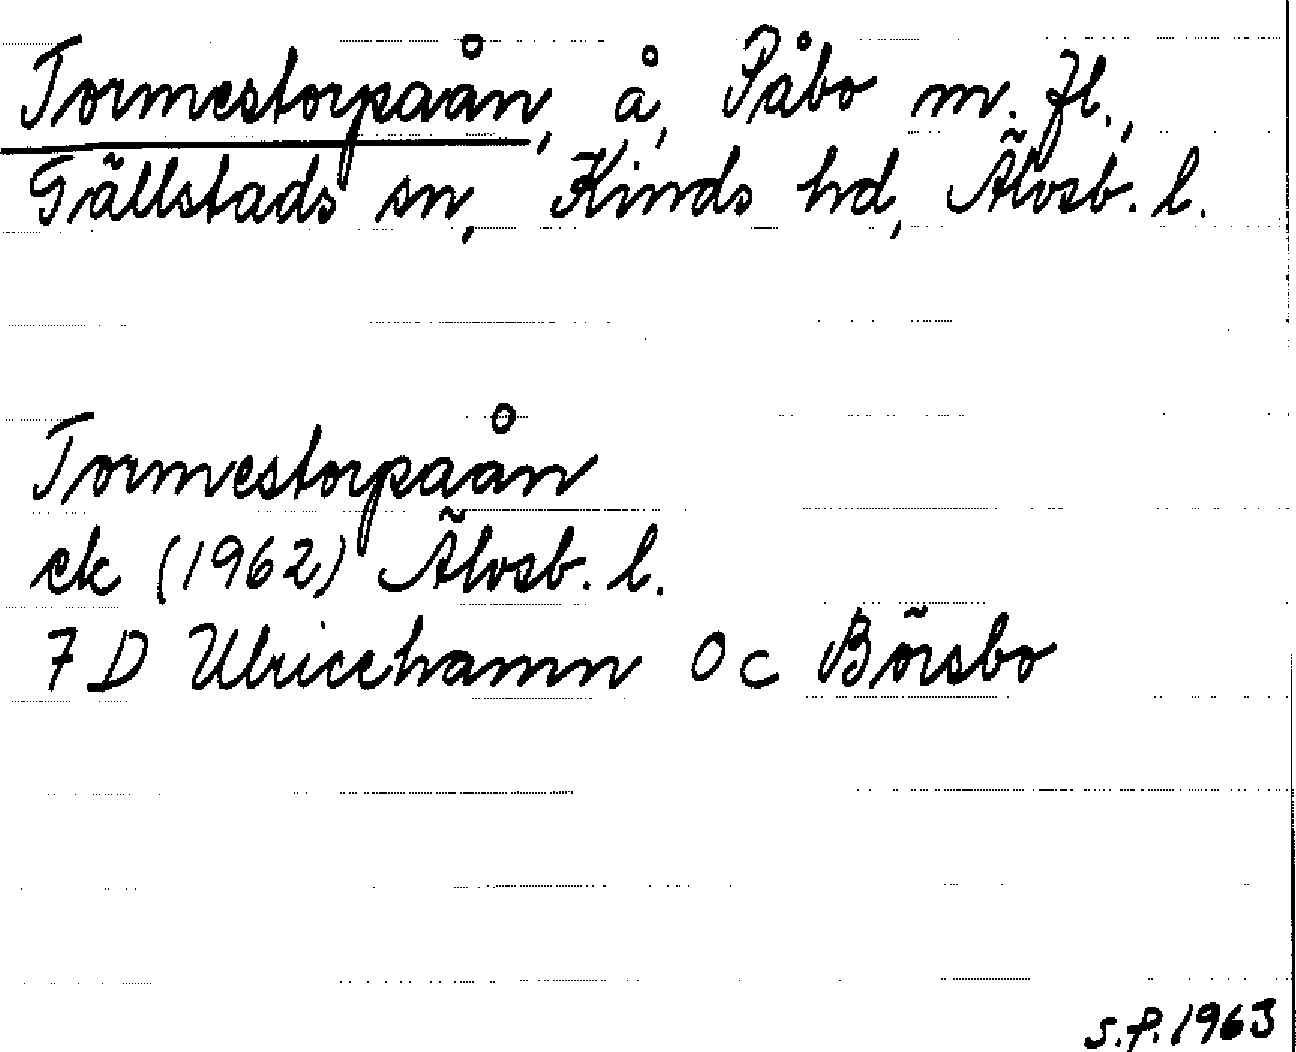 Tormestorpaån, å, Påbo m. fl.,
Gällstads sn, Kinds hd, Älvsb. l.
Tormestorpaån
ek (1962) Älvsb. l.
7 D Ulricehamn 0 c Börsbo
S.P. 1963